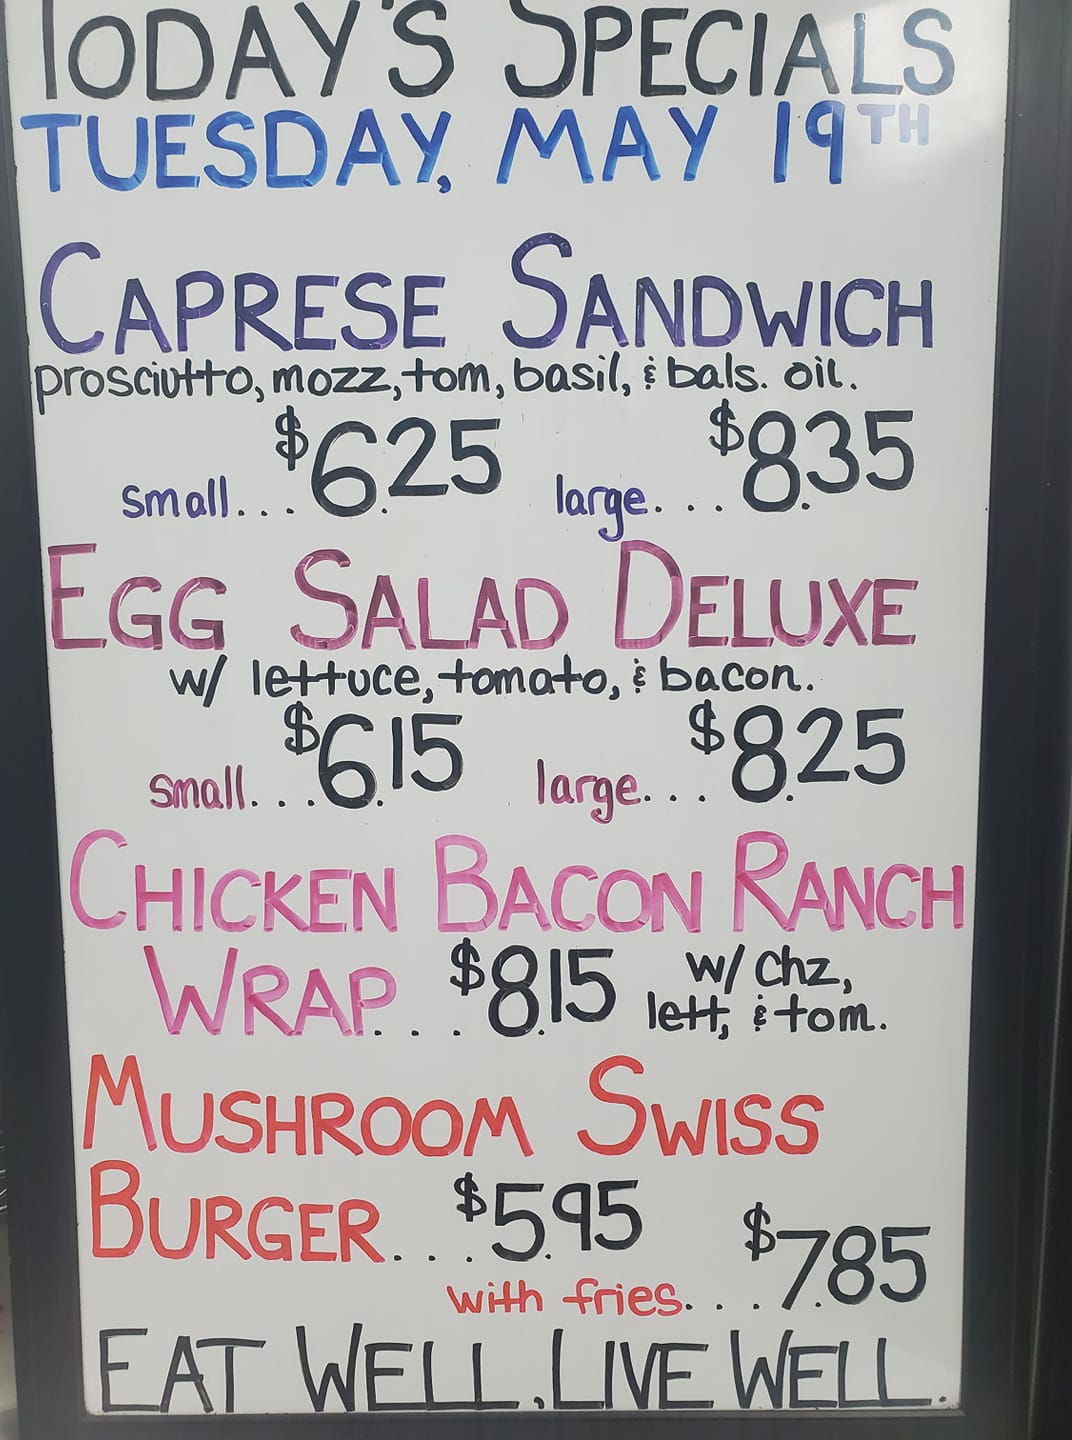 TODAY'S SPECIALS
TUESDAY, MAY 19TH
CAPRESE SANDWICH
prosciutto, mozz, tom, basil, & bals. oil.
small... $6.25 large.... $8.35
EGG SALAD DELUXE
w/ lettuce, tomato, & bacon.
small... $6.15 large.... $8.25
CHICKEN BACON RANCH
WRAP... $8.15 w/ chz,
lett, & tom.
MUSHROOM SWISS
BURGER... $5.95
with fries.... $7.85
EAT WELL, LIVE WELL.